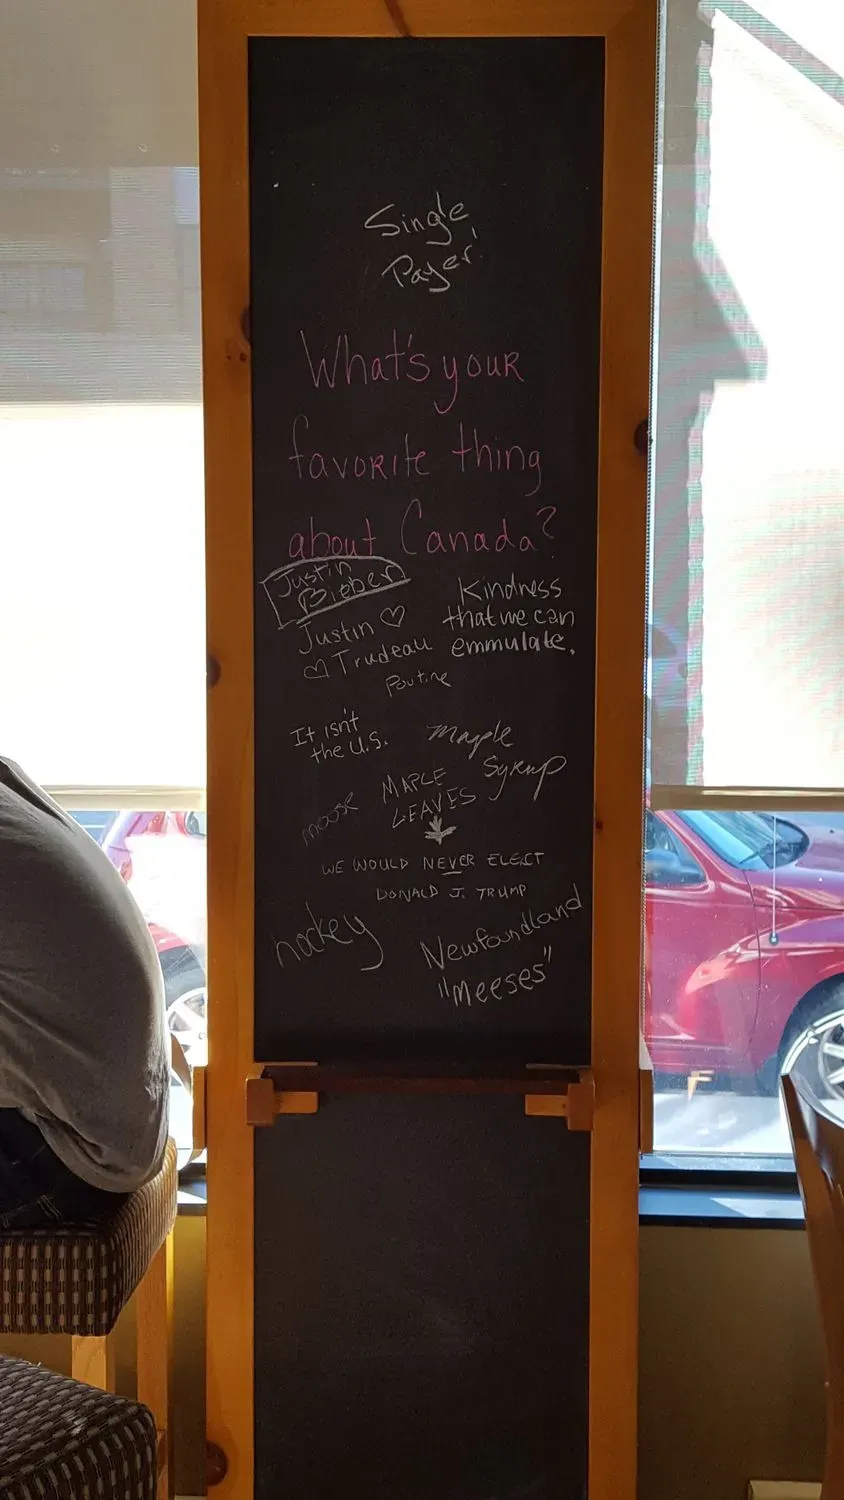 Single
Payer!
What's your
favorite thing
about Canada?
Justin
Bieber
Kindness
that we can
emmulate.
Justin ♡
♡ Trudeau
Poutine
It isn't
the U.S.
Maple
Syrup
moose
MAPLE
LEAVES
WE WOULD NEVER ELECT
DONALD J. TRUMP
hockey
Newfoundland
"Meeses"